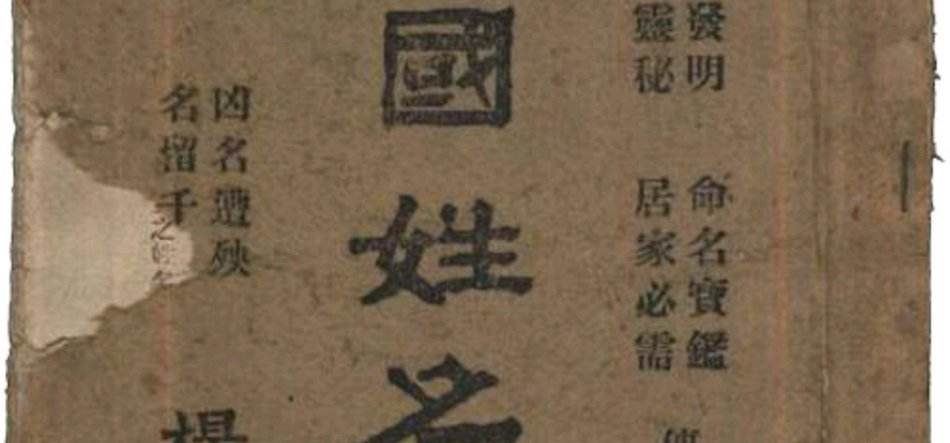 發明 命名寶鑑
靈秘 居家必需
國姓名
凶名遭殃
名留千
楊